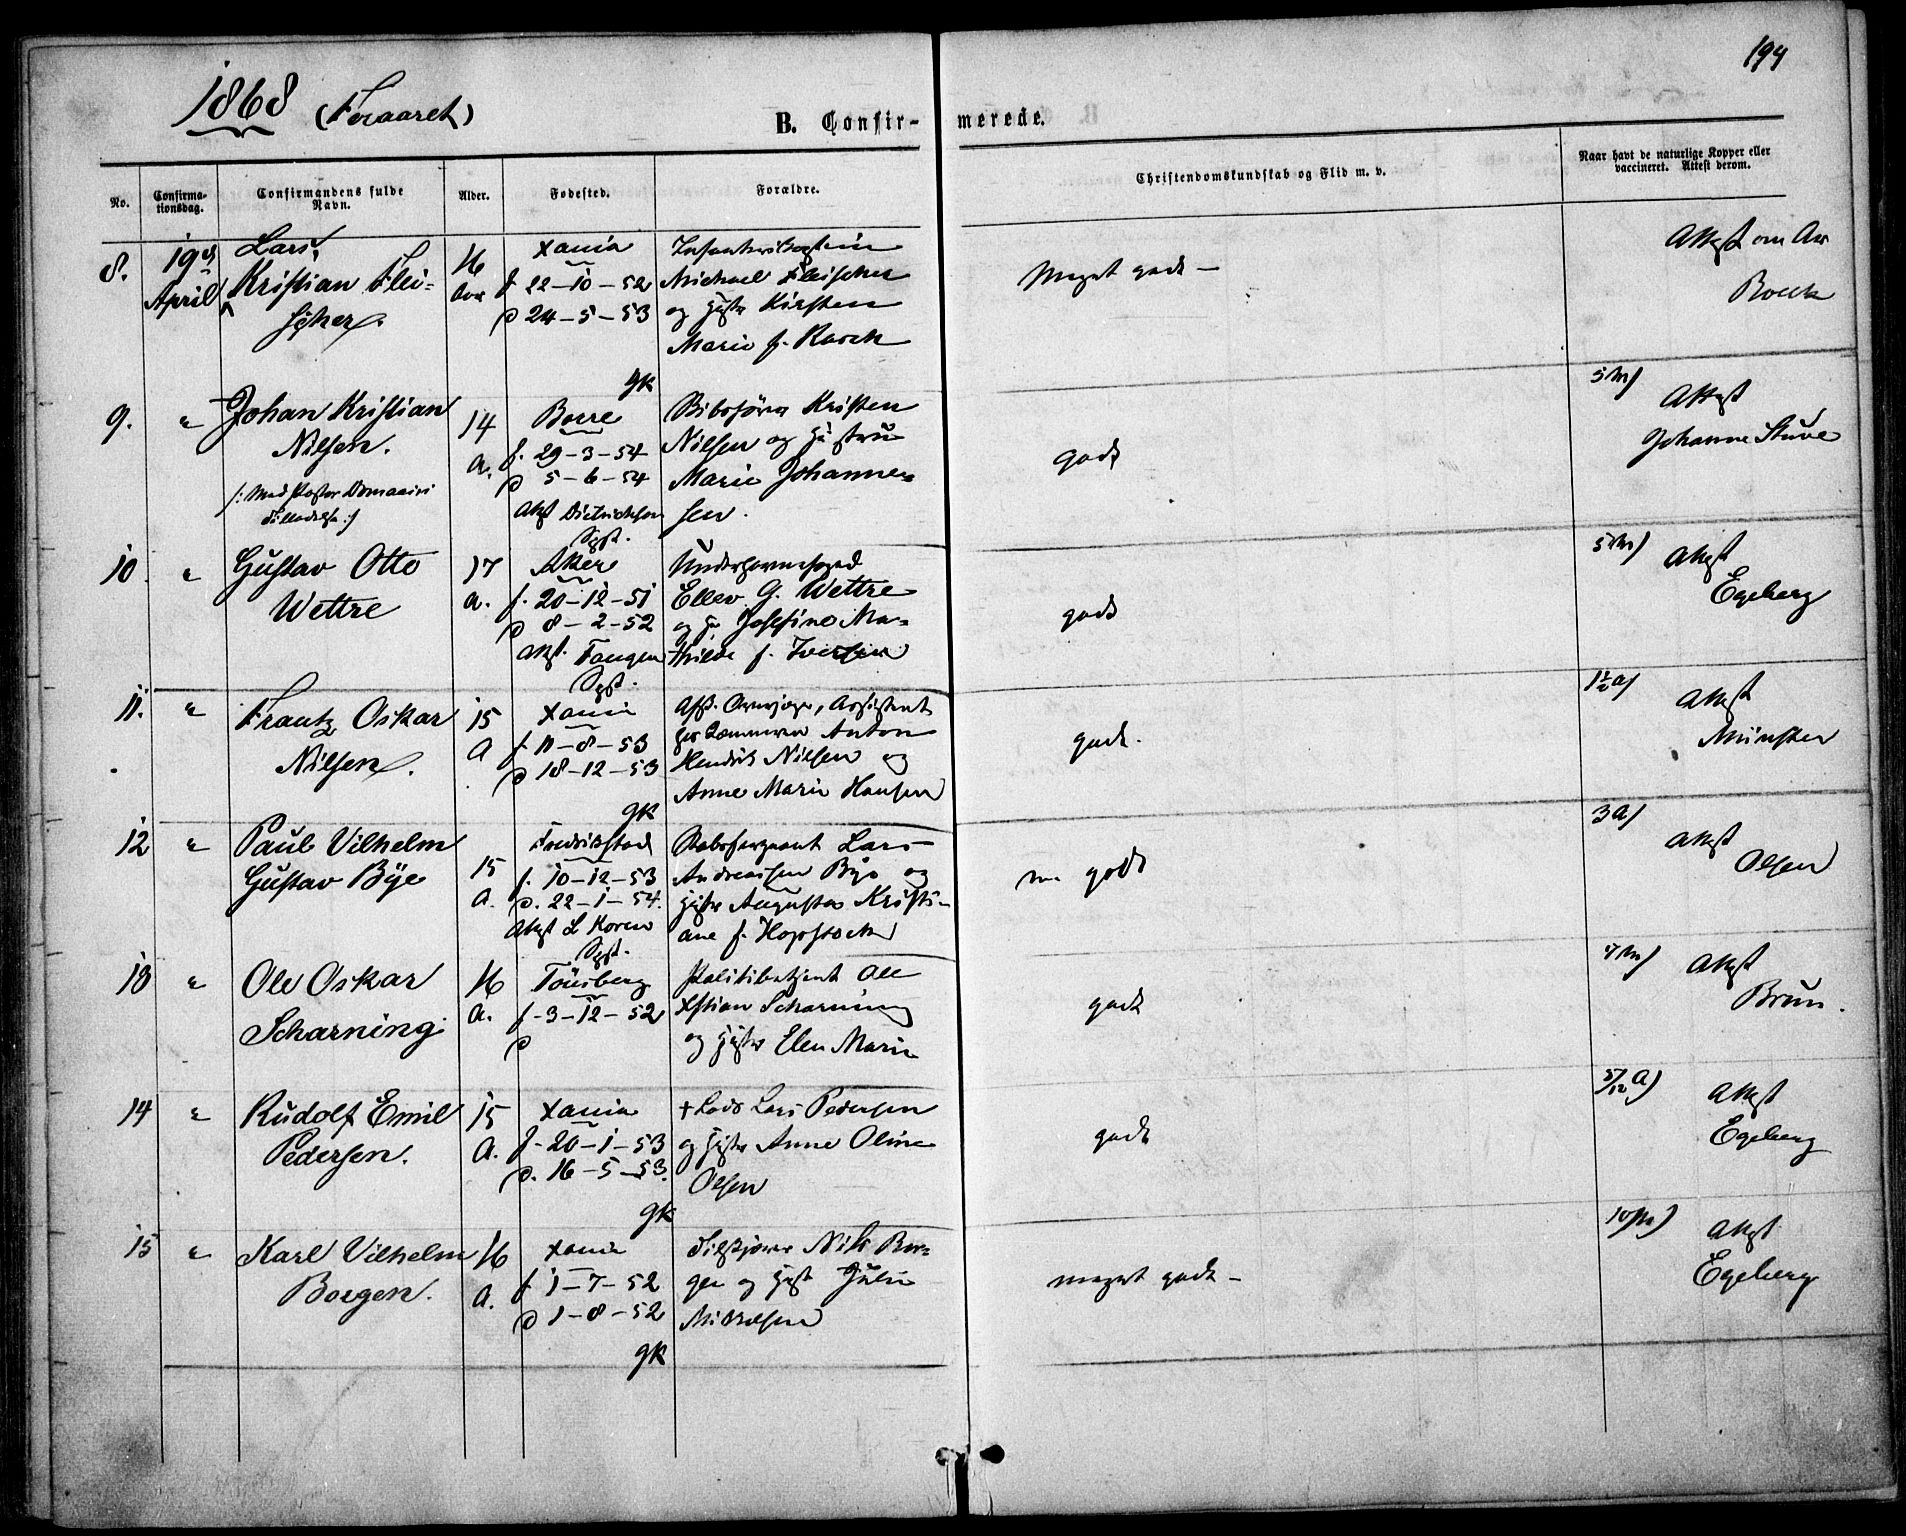 194
1868 (Foraaret)
B. Confir- merede.
No.
Confirma-
tionsdag.
Confirmandens fulde
Navn.
Alder.
Fødested.
Forældre.
Christendomskundskab og Flid m. v.
Naar havt de naturlige Kopper eller
vaccineret. Attest derom.
8.
19de
April
Lars
Kristian Flei-
scher.
16
Xania
f 22-10-52
d 24-5-53
gk
Michael Fleischer
og Hstr Kirsten
Marie f. Rasch
Meget godt -
Attest om
Boeck
9.
"
Johan Kristian
Nilsen.
14
A.
Borre
f. 29-3-54
d 5-6-54
Attst Dietrichson
Sgpt.
Kristen
Nilsen og Hustru
Marie Johanne-
sen.
godt
5 M)
Attest
Johanne Stuve
10
"
Gustav Otto
Wettre
17
A.
Aker
f. 20-12-51
d 8-2-52
Attst. Tangen
Sgpt.
Ellev G. Wettre
og H. Josefine Ma-
thilde f. Iversen
godt
5 M)
Attest
Egeberg
11.
"
Frantz Oskar
Nilsen.
15
A
Xania
f 11-8-53
d 18-12-53
gk
Assistent
Anton
Hendrik Nilsen og
Anne Marie Hansen
godt.
1½ A)
Attest
Münster
12
"
Paul Vilhelm
Gustav Bye
15
A.
Fredrikstad
f. 10-12-53
d. 22-1-54.
Attst L Koren
Sgpt.
Lars
Andreassen Bye og
Hstr Augusta Kristi-
ane f. Hopstock
m. godt
3 A)
Attest
Olsen
13
"
Ole Oskar
Scharning
16
A.
Tönsberg
f - 3-12-52
d
Politibetjent Ole
Xstian Scharning
og Hstr Elen Marie
godt
7 M)
Attest
Brun.
14
"
Rudolf Emil
Pedersen.
15
A.
Xania
f. 20-1-53
d. 16-5-53.
gk
+ Lods Lars Pedersen
og Hstr Anne Oline
Olsen
godt
5/12 A)
Attest
Egeberg
15
"
Karl Vilhelm
Borgen.
16
A.
Xania
f 1-7-52
d 1-8-52
gk
Nils Bor-
gen og Hst Julie
meget godt -
10 M)
Attest
Egeberg